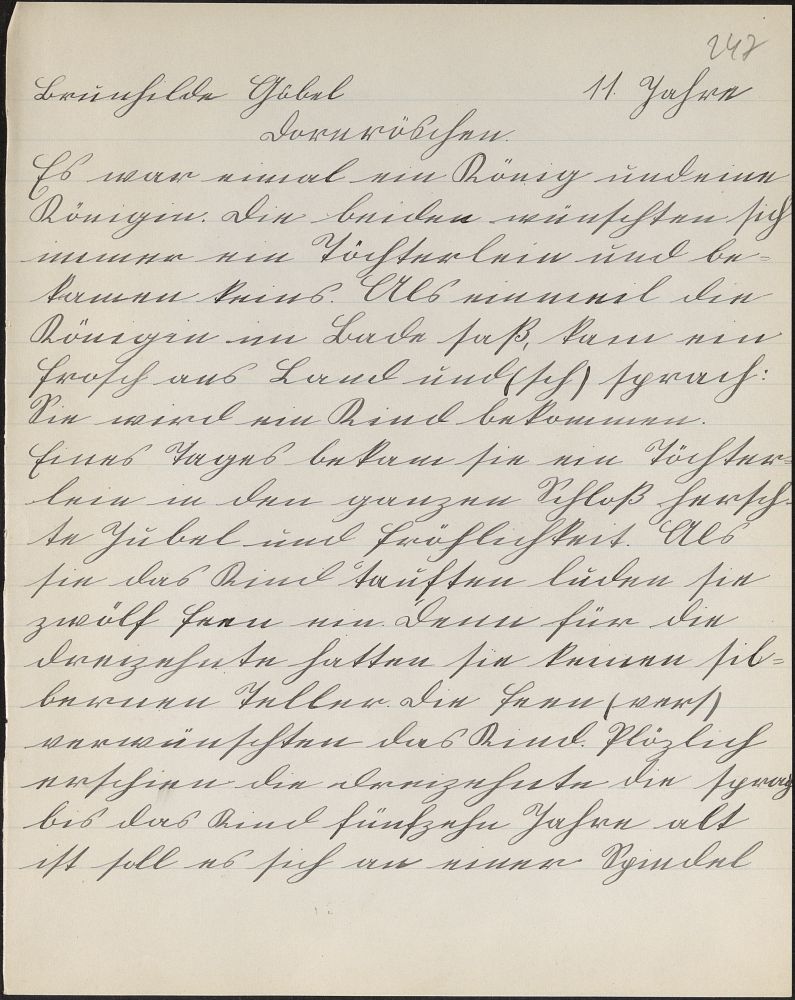 247
Brunhilde Göbel 11 Jahre
Dornröschen.
Es war eimal ein König und eine
Königin. Die beiden wünschten sich
immer ein Töchterlein und be=
kamen keins. Als einmeil die
Königin im Bade saß, kam ein
Frosch ans Land und (sch) sprach:
Sie wird ein Kind bekommen.
Eines Tages bekam sie ein Töchter=
lein in den ganzen Schloß hersch=
te Jubel und Fröhlichkeit. Als
sie das Kind tauften luden sie
zwölf Feen ein. Denn für die
dreizehnte hatten sie keinen sil=
bernen Teller. Die Feen (vers)
verwünschten das Kind. Plözlich
erschien die dreizehnte die sprach
bis das Kind fünfzehn Jahre alt
ist soll es sich an einer Spindel